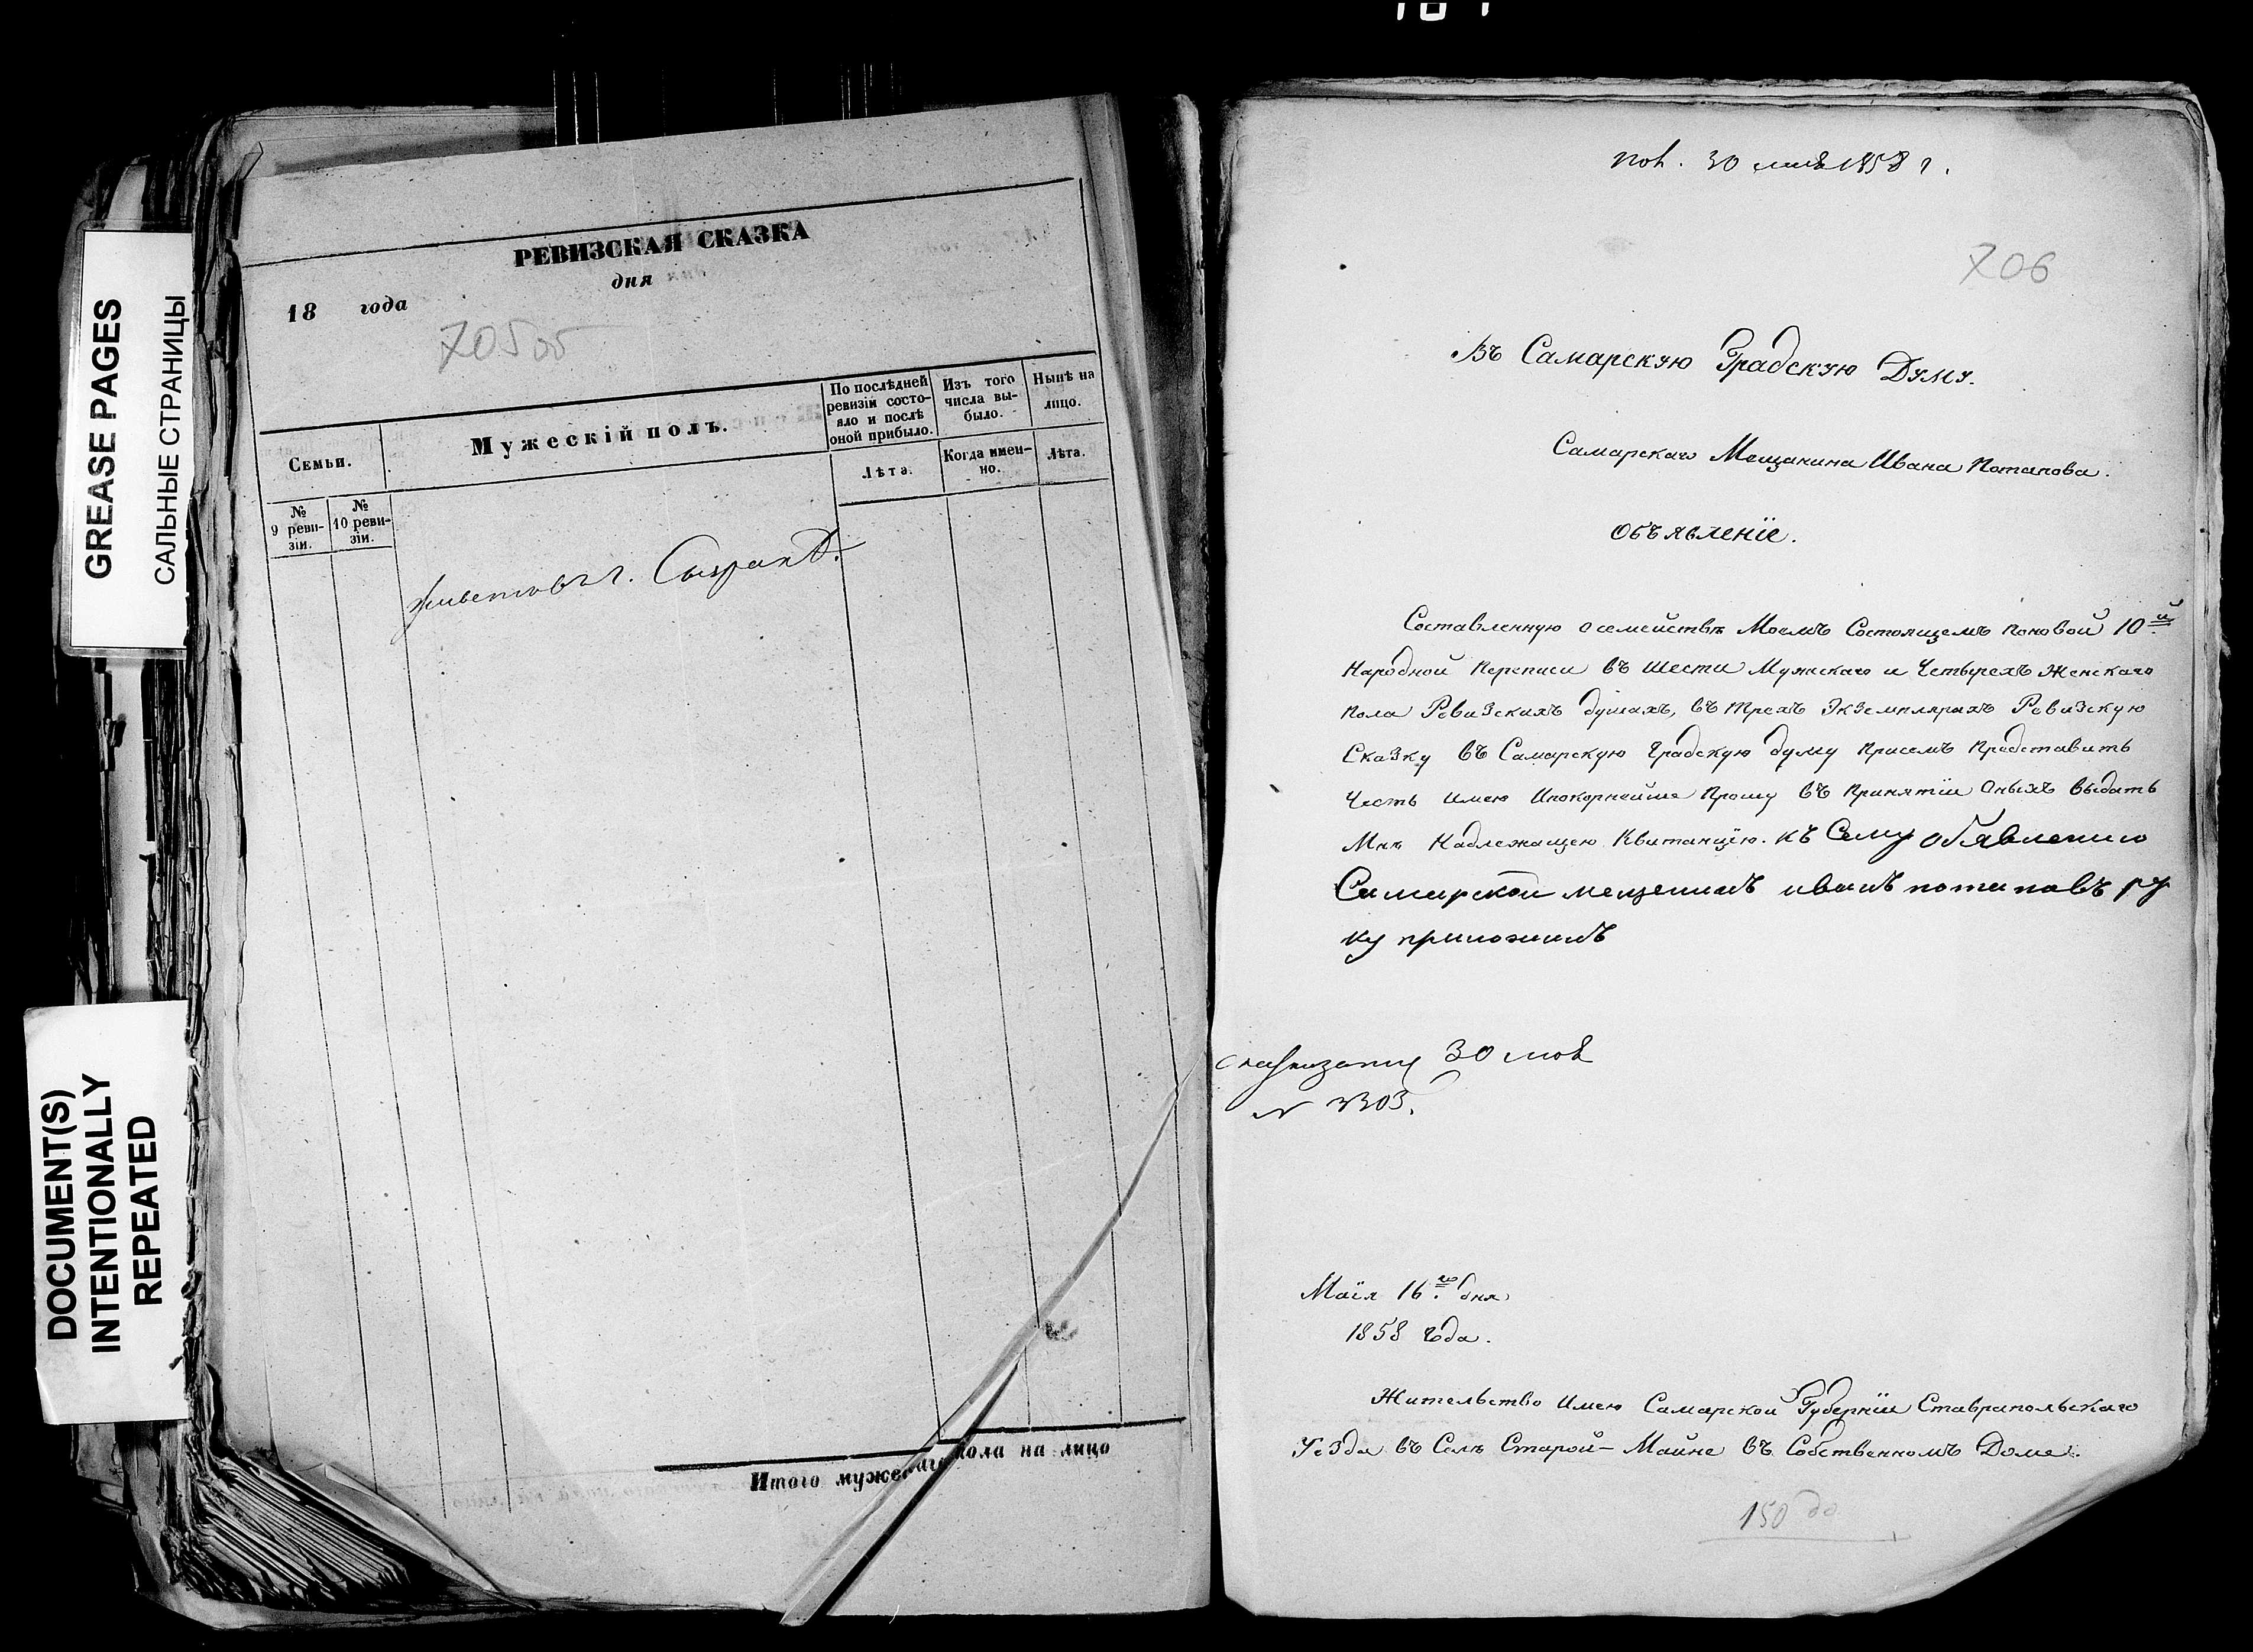 GREASE PAGES
САЛЬНЫЕ СТРАНИЦЫ
DOCUMENT(S)
INTENTIONALLY
REPEATED
РЕВИЗСКАЯ СКАЗКА
дня
18 года
705 об
Семьи.
Мужескій полъ.
По послѣдней
ревизіи состо-
яло и послѣ
оной прибыло.
Изъ того
числа вы-
было.
Нынѣ на
лицо.
Лѣта.
Когда имен-
но.
Лѣта.
№
9 реви-
зіи.
№
10 реви-
зіи.
живетъ въ г.
Итого мужескаго пола на лицо
30 1858 г.
706
Въ Самарскую Градскую Думу.
Самарскаго Мещанина Ивана Потапова.
Объявленіе.
Составленную о семействѣ Моемъ Состоящемъ поновой 10й
Народной Переписи въ шести Мужскаго и Четырехъ Женскаго
пола Ревизскихъ душахъ, въ трехъ Экземплярахъ Ревизскую
Сказку въ Самарскую Градскую думу присемъ представить
Честь имею Ипокорнейше прошу въ принятіи Оныхъ выдать
Мнѣ Надлежащею Квитанцію. Къ Сему обявлению
Самарской мещенинъ иванъ потаповъ ру
ку приложилъ
30
Маія 16го дня
1858 года.
Жительство Имею Самарской Губерніи Ставрапольскаго
Уезда въ Селѣ Старой-Майне въ Собственномъ Доме.
150